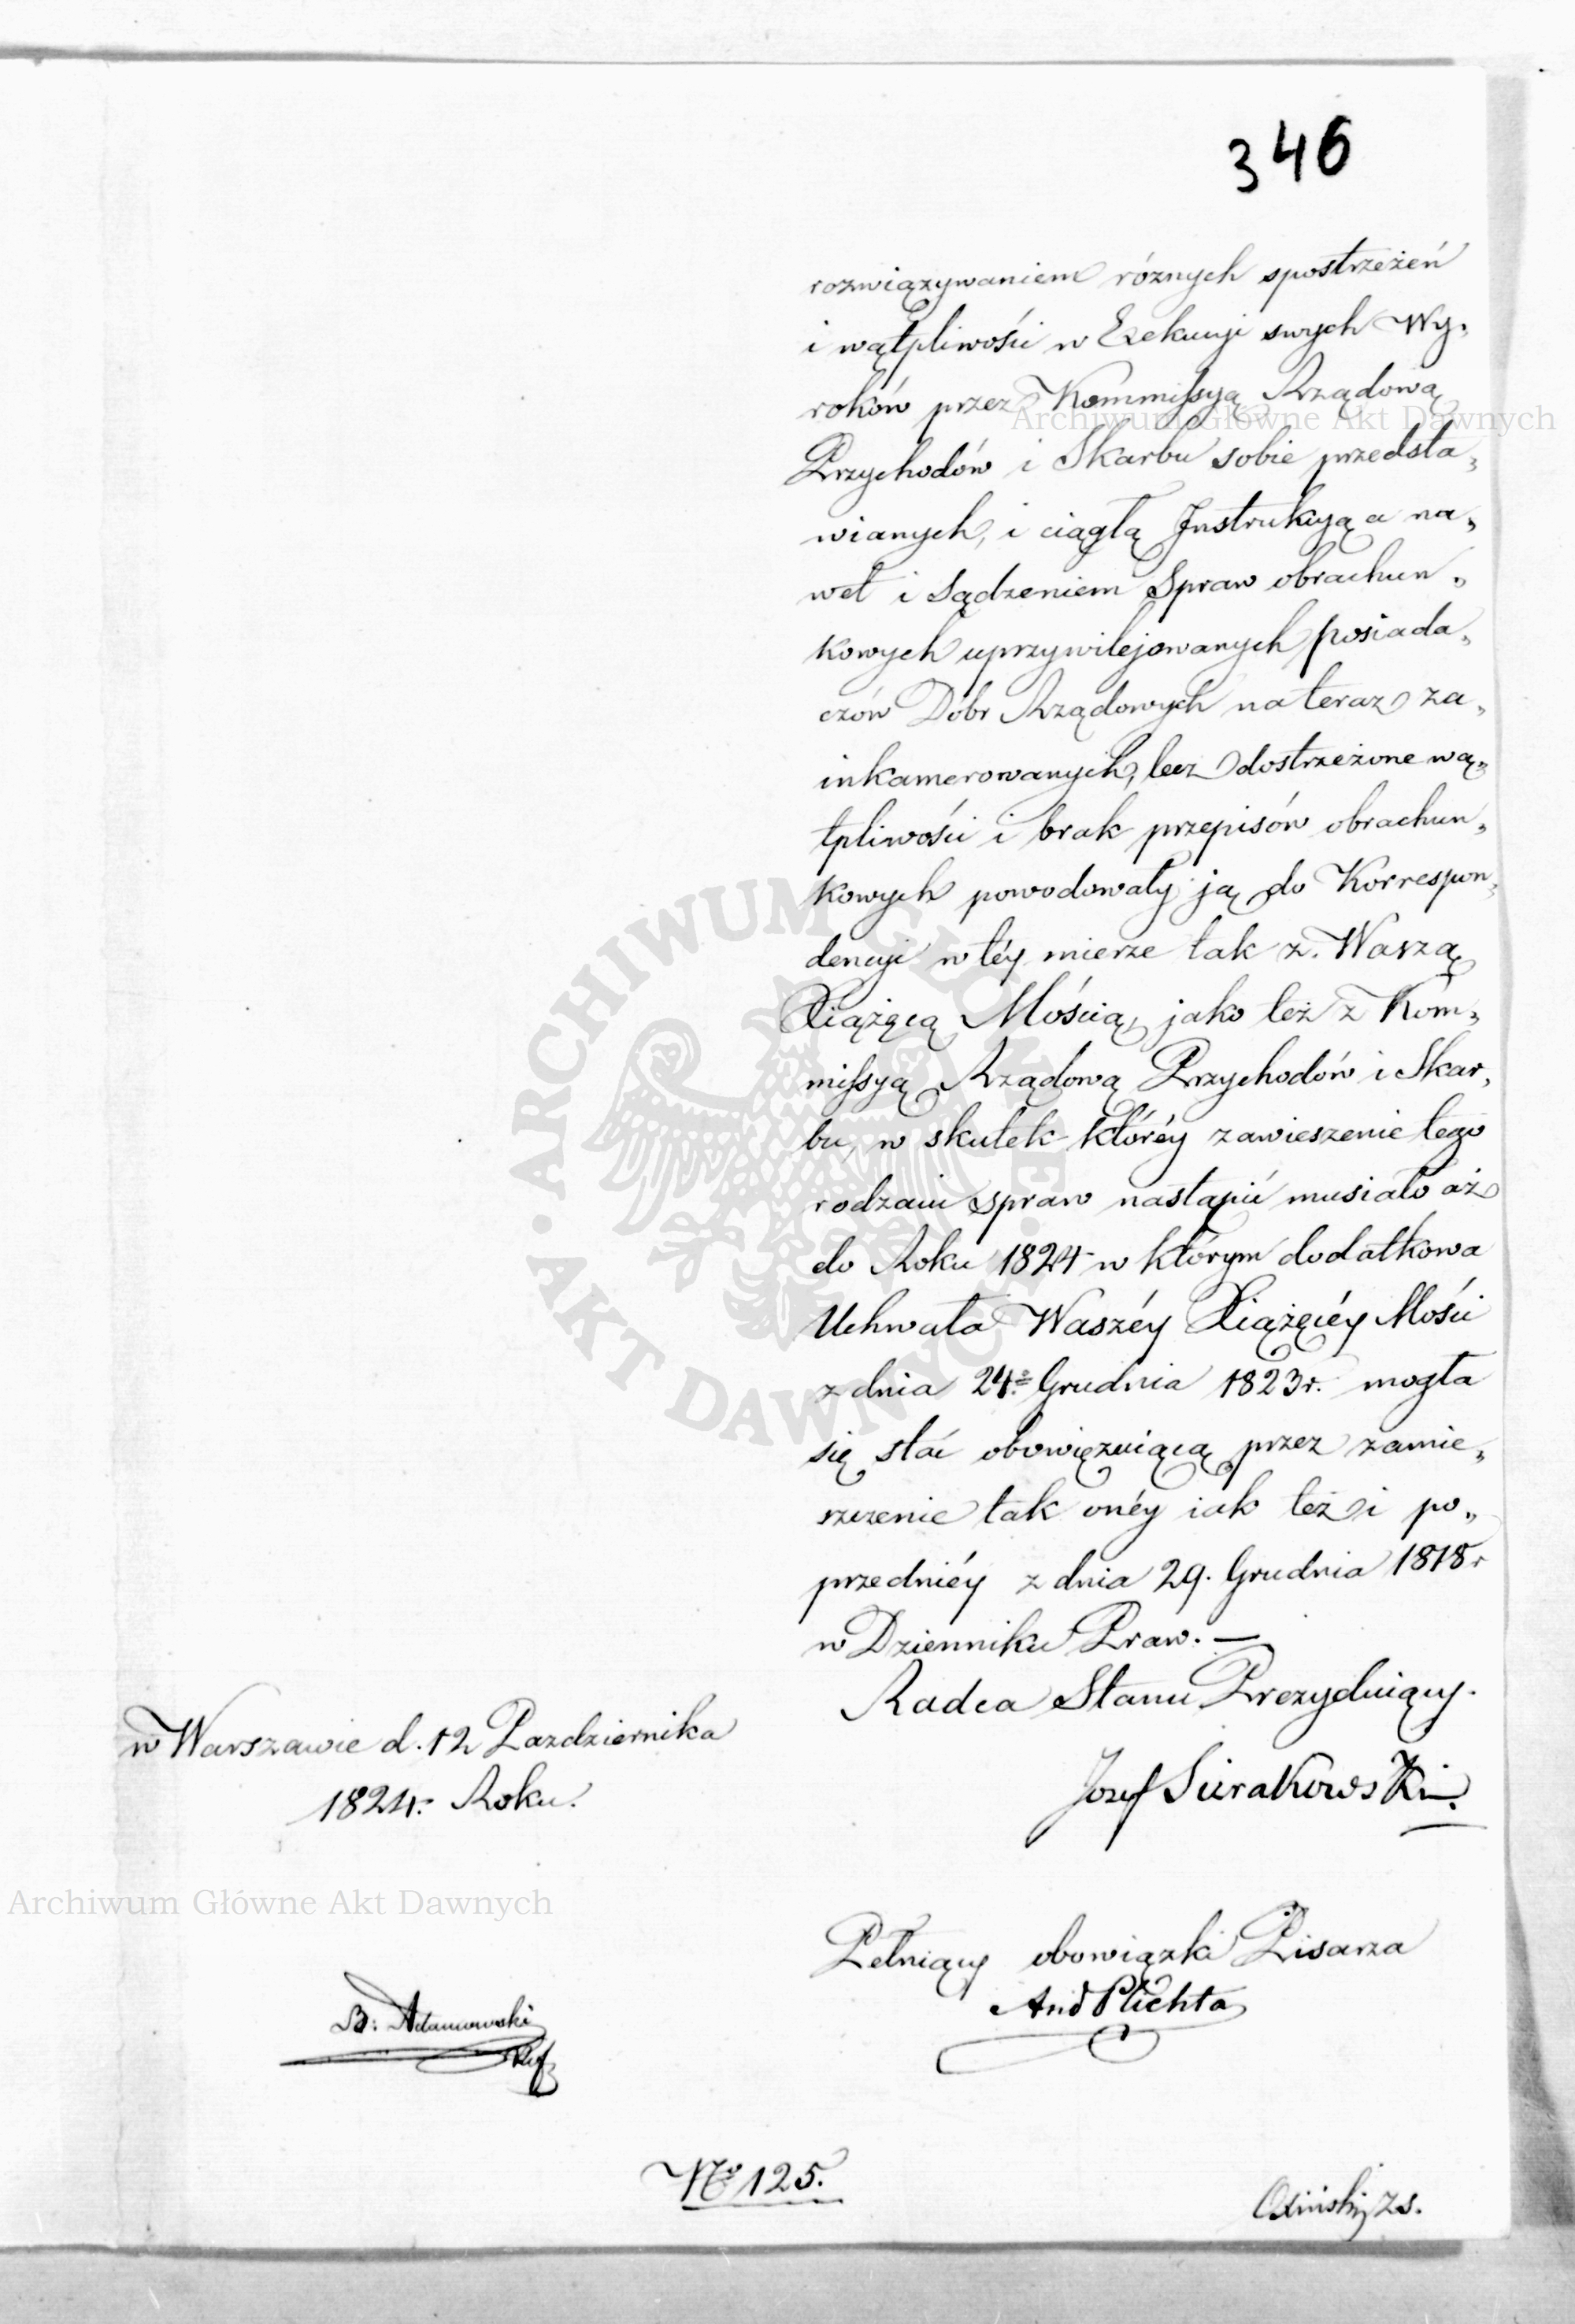 346
rozwiązywaniem różnych spostrzeżeń
i wątpliwości w Exekucyi swych Wy„
roków przez Kommissyą Rządową
Archiwum Główne Akt Dawnych
Przychodów i Skarbu sobie przedsta„
wianych, i ciągłą Instrukcyą a na„
wet i Sądzeniem Spraw obrachun„
kowych uprzywilejowanych posiada„
czów Dóbr Rządowych na teraz za„
inkamerowanych, lecz dostrzeżone wą„
tpliwości i brak przepisów obrachun„
kowych powodowały ją do Korrespon„
dencyi w téy mierze tak z Waszą
Xiążęcą Mością, jako też z Kom„
missyą Rządową Przychodów i Skar„
bu, w skutek któréy zawieszenie tego
rodzaiu spraw nastąpić musiało aż
do Roku 1824 w którym dodatkowa
Uchwała Waszéy Xiążęcéy Mości
z dnia 24º Grudnia 1823 r. mogła
się stać obowięzuiącą przez zamie„
szczenie tak onéy iak też i po„
przedniéy z dnia 29. Grudnia 1818 r
w Dzienniku Praw. —
Radca Stanu Prezyduiący.
w Warszawie d. 12 Pazdziernika
1824. Roku.
Jozef Sierakowski.
Archiwum Główne Akt Dawnych
Pełniący obowiązki Pisarza
And Plichta
B: Adamowski
Ref
Nº 125.
Osiński zs.
ARCHIWUM GŁÓWNE · AKT DAWNYCH ·